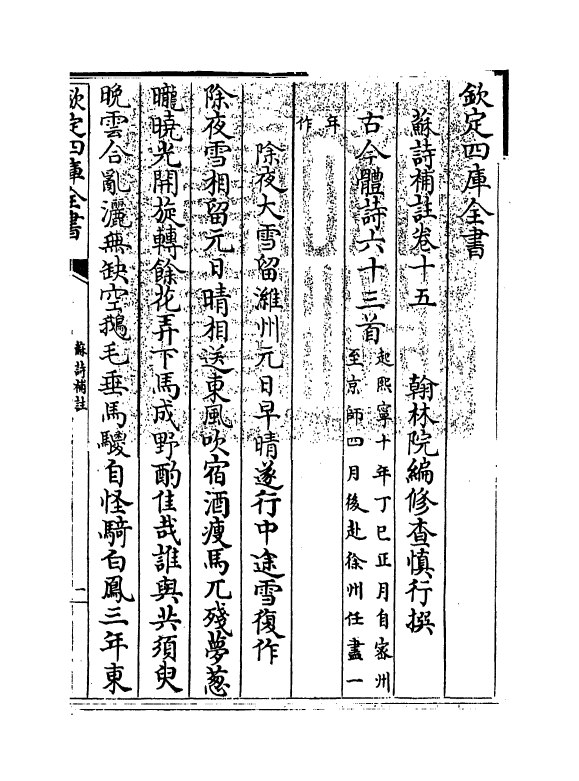 欽定四庫全書
蘇詩補註卷十五　翰林院編修查慎行撰
古今體詩六十三首起熙寧十年丁巳正月自密州
至京師四月後赴徐州任盡一
年
作
除夜大雪留濰州元日早晴遂行中途雪復作
除夜雪相留元日晴相送東風吹宿酒瘦馬兀殘夢葱
曨曉光開旋轉餘花弄下馬成野酌佳哉誰與共須臾
晚雲合亂灑無缺空鵝毛垂馬騣自怪騎白鳳三年東
欽定四庫全書
蘇詩補註
一